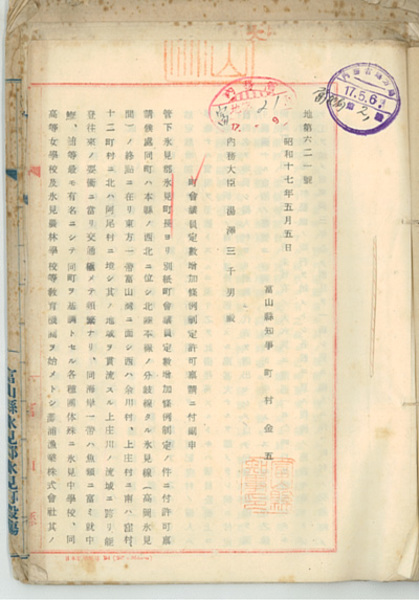 地第六二一號
昭和十七年五月五日
富山縣知事 町村金五
內務大臣 湯澤三千男殿
町會議員定數增加條例制定許可稟請ニ付副申
管下氷見郡氷見町長ヨリ別紙町會議員定數增加條例制定ノ件ニ付許可稟
請候處同町ハ本縣ノ西北ニ位シ北陸本線ノ分岐線タル氷見線(高岡氷見
間)ノ終點ニ在リ東方一帶富山灣ニ面シ西ハ余川村、上庄村ニ南ハ窪村
十二町村ニ北ハ阿尾村ニ境シ其ノ地域ヲ貫流スル上庄川ノ流域ニ跨リ
登往來ノ要衝ニ當リ交通極メテ頻繁ナリ、同海岸一帶ハ魚類ニ富ミ就中
鰤、鰮等最モ有名ニシテ同町ヲ基調トセル各種團体殊ニ氷見中學校、同
高等女學校及氷見農林學校等敎育機關ヲ始メトシ 漁業株式會社其ノ
17.5.6
富山縣氷見郡氷見町役場